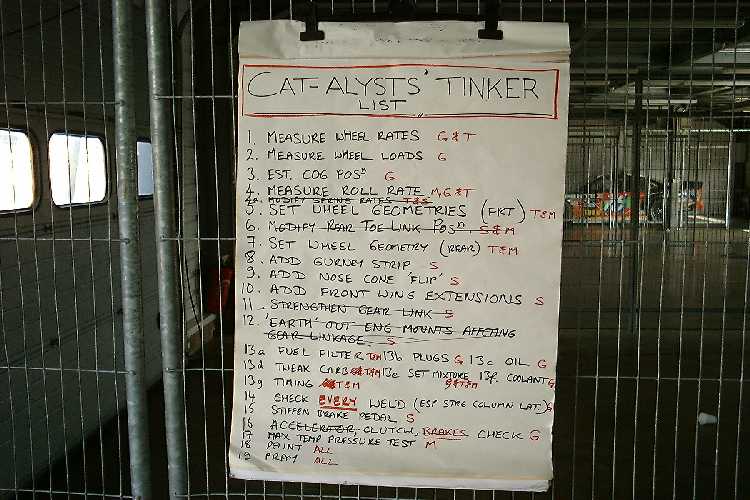 CAT-ALYSTS' TINKER
LIST
1. MEASURE WHEEL RATES G & T
2. MEASURE WHEEL LOADS G
3. EST. COG POSN G
4. MEASURE ROLL RATE M, G & T
4a. MODIFY SPRING RATES T & S
5. SET WHEEL GEOMETRIES (FRT) T & M
6. MODIFY REAR TOE LINK POSN S & M
7. SET WHEEL GEOMETRY (REAR) T & M
8. ADD GURNEY STRIP S
9. ADD NOSE CONE 'FLIP' S
10. ADD FRONT WING EXTENSIONS S
11. STRENGTHEN GEAR LINK S
12. 'EARTH' OUT ENG MOUNTS AFFECTING
GEAR LINKAGE. S
13a FUEL FILTER T&M 13b PLUGS G 13c OIL G
13d TWEAK CARB T&M 13e SET MIXTURE 13f. COOLANT G
13g TIMING T&M G&T&M
14 CHECK EVERY WELD (ESP STRG COLUMN LAT.) G
15 STIFFEN BRAKE PEDAL S
16 ACCELERATOR, CLUTCH, BRAKES CHECK G
17 MAX TEMP PRESSURE TEST M
18 PAINT ALL
19 PRAY ALL